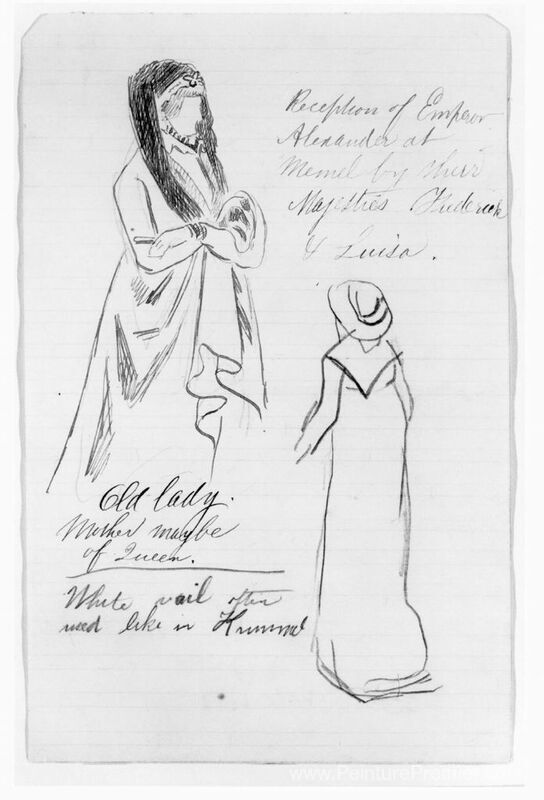 Reception of Emperor
Alexander at
Memel by their
Majesties Frederick
& Luisa.
Old lady.
Mother maybe
of Queen.
White vail often
used like in
www.PeinturePro